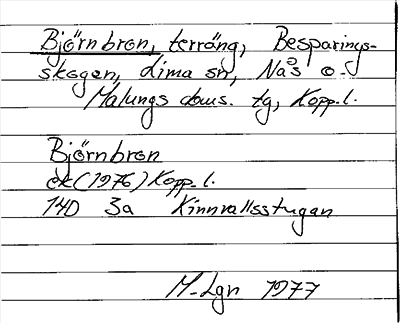 Björnbron, terräng, Besparings-
skogen, Lima sn, Nås o.
Malungs doms. tg, Kopp. l.
Björnbron
ek (1976) Kopp. l.
14D 3a Kinnvallsstugan
M-Lgn 1977